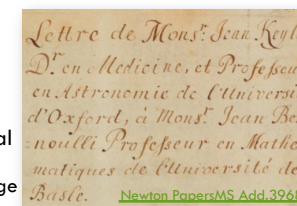 Lettre de Mons.r Jean Keyl
D.r en Medicine, et Professeu
en Astronomie de l'Universi
d'Oxford, à Mons.r Jean Be
al
=noulli Professeur en Mathe
matiques de l'Université de
ge
Basle.
Newton PapersMS Add.3968